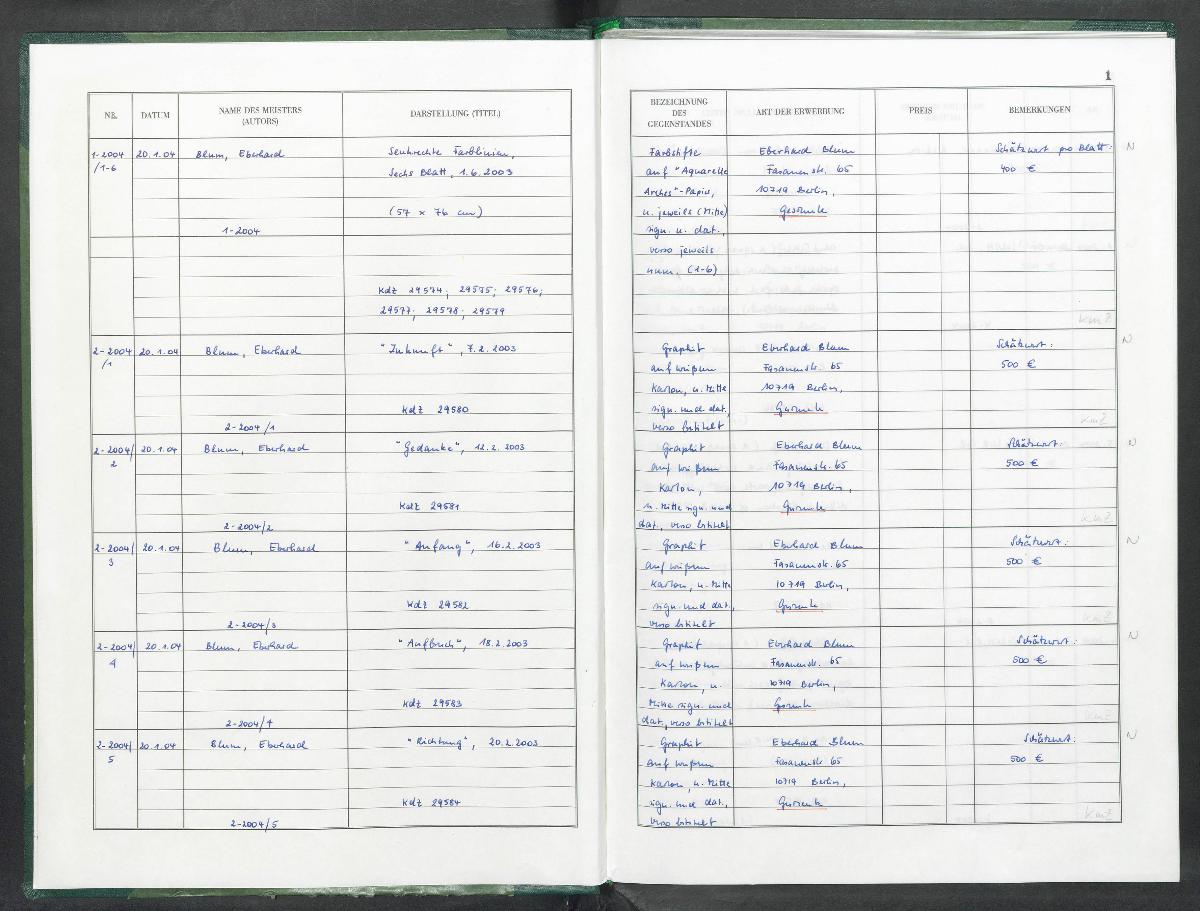 1
NR.
DATUM
NAME DES MEISTERS
(AUTORS)
DARSTELLUNG (TITEL)
BEZEICHNUNG
DES
GEGENSTANDES
ART DER ERWERBUNG
PREIS
BEMERKUNGEN
1-2004
/1-6
20.1.04
Blum, Eberhard
1-2004
Senkrechte Farblinien,
Sechs Blatt, 1.6.2003
(57 x 76 cm)
KdZ 29574; 29575; 29576;
29577; 29578; 29579
Farbstifte
auf "Aquarelle
Arches"-Papier,
u. jeweils (Mitte)
sign. u. dat.,
verso jeweils
num. (1-6)
Eberhard Blum
Fasanenstr. 65
10719 Berlin,
Geschenk
Schätzwert pro Blatt:
400 €
N
KmZ
2-2004
/1
20.1.04
Blum, Eberhard
2-2004/1
"Zukunft", 7.2.2003
KdZ 29580
Graphit
auf weißem
Karton, u. Mitte
sign. und dat.,
verso betitelt
Eberhard Blum
Fasanenstr. 65
10719 Berlin,
Geschenk
Schätzwert:
500 €
N
KmZ
2-2004/
2
20.1.04
Blum, Eberhard
2-2004/2
"Gedanke", 12.2.2003
KdZ 29581
Graphit
auf weißem
Karton,
u. Mitte sign. und
dat., verso betitelt
Eberhard Blum
Fasanenstr. 65
10719 Berlin,
Geschenk
Schätzwert:
500 €
N
KmZ
2-2004/
3
20.1.04
Blum, Eberhard
2-2004/3
"Anfang", 16.2.2003
KdZ 29582
Graphit
auf weißem
Karton, u. Mitte
sign. und dat.,
verso betitelt
Eberhard Blum
Fasanenstr. 65
10719 Berlin,
Geschenk
Schätzwert:
500 €
N
KmZ
2-2004/
4
20.1.04
Blum, Eberhard
2-2004/4
"Aufbruch", 18.2.2003
KdZ 29583
Graphit
auf weißem
Karton, u.
Mitte sign. und
dat., verso betitelt
Eberhard Blum
Fasanenstr. 65
10719 Berlin,
Geschenk
Schätzwert:
500 €
N
KmZ
2-2004/
5
20.1.04
Blum, Eberhard
2-2004/5
"Richtung", 20.2.2003
KdZ 29584
Graphit
auf weißem
Karton, u. Mitte
sign. und dat.,
verso betitelt
Eberhard Blum
Fasanenstr. 65
10719 Berlin,
Geschenk
Schätzwert:
500 €
N
KmZ